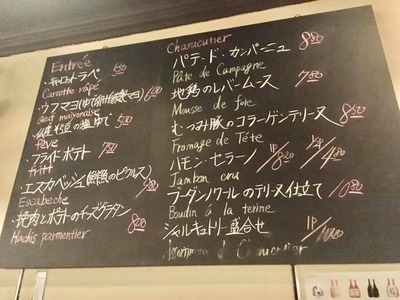 Entrée
・キャロットラペ 500
Carotte râpé
・ウフマヨ(ゆで卵 マヨ) 600
Oeuf mayonaise
の塩ゆで 500
fève
・フライドポテト 780
frit
・エスカベッシュ(鮮魚のピクルス) 980
Escabeche
・挽肉とポテトのチーズグラタン 800
Hachis parmentier
Charcutier
パテ・ド・カンパーニュ 880
Pâte de Campagne
地鶏のレバームース 780
Mousse de foie
むつみ豚のコラーゲンテリーヌ 850
Fromage de Tête
ハモン・セラーノ 1P/820 1/2P/480
Jambon cru
ブーダンノワールのテリーヌ仕立て 1080
Boudin à la terine
シャルキュトリー盛合せ 1P/1000
Charcutier